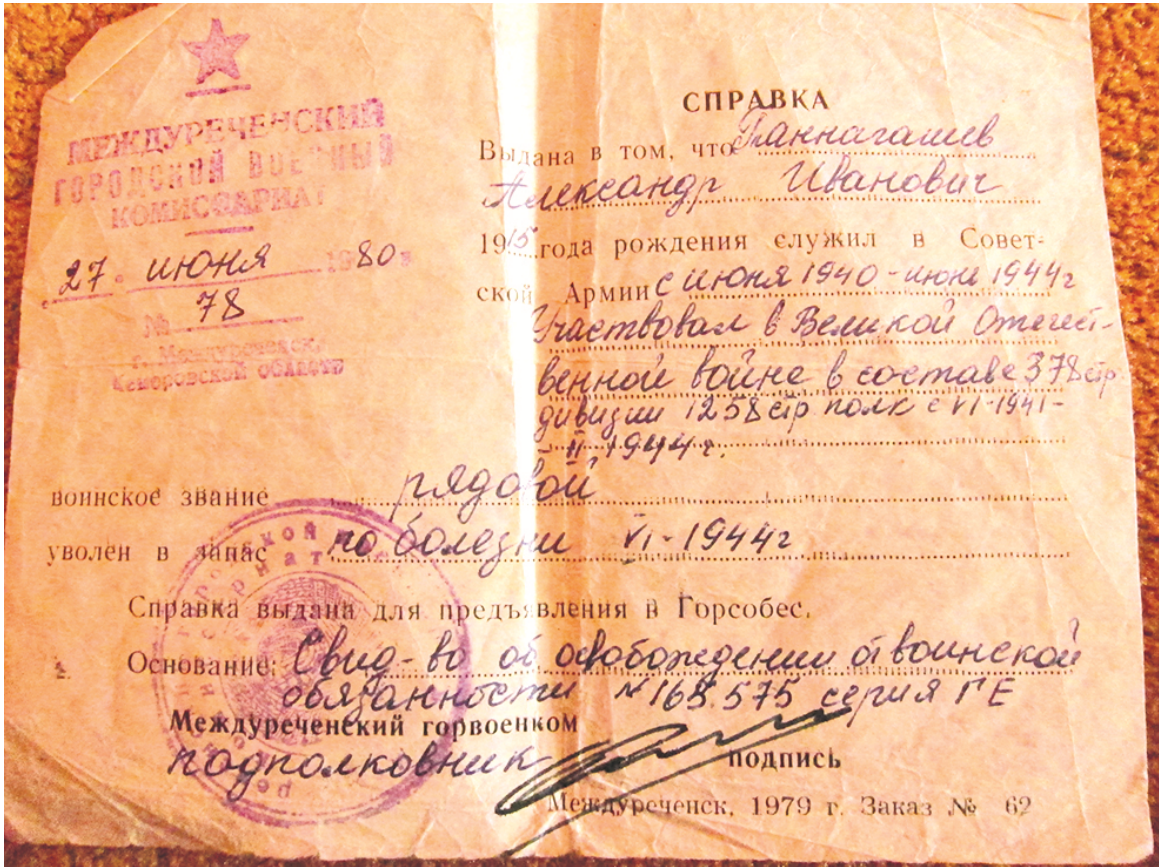 МЕЖДУРЕЧЕНСКИЙ
ГОРОДСКОЙ ВОЕННЫЙ
КОМИССАРИАТ
27 июня 1980 г
№ 78
г. Междуреченск,
Кемеровской области
СПРАВКА
Выдана в том, что Таннагашев
Александр Иванович
1915 года рождения служил в Совет-
ской Армии с июня 1940 - июнь 1944г
Участвовал в Великой Отечест-
венной войне в составе 378 стр
дивизии 1258 стр полк с VI-1941-
- II - 1944г.
воинское звание рядовой
уволен в запас по болезни VI-1944г
Справка выдана для предъявления в Горсобес.
Основание: Свид-во об освобождении от воинской
обязанности № 168.575 серия ГЕ
Междуреченский горвоенком
подполковник подпись
Междуреченск, 1979 г. Заказ № 62